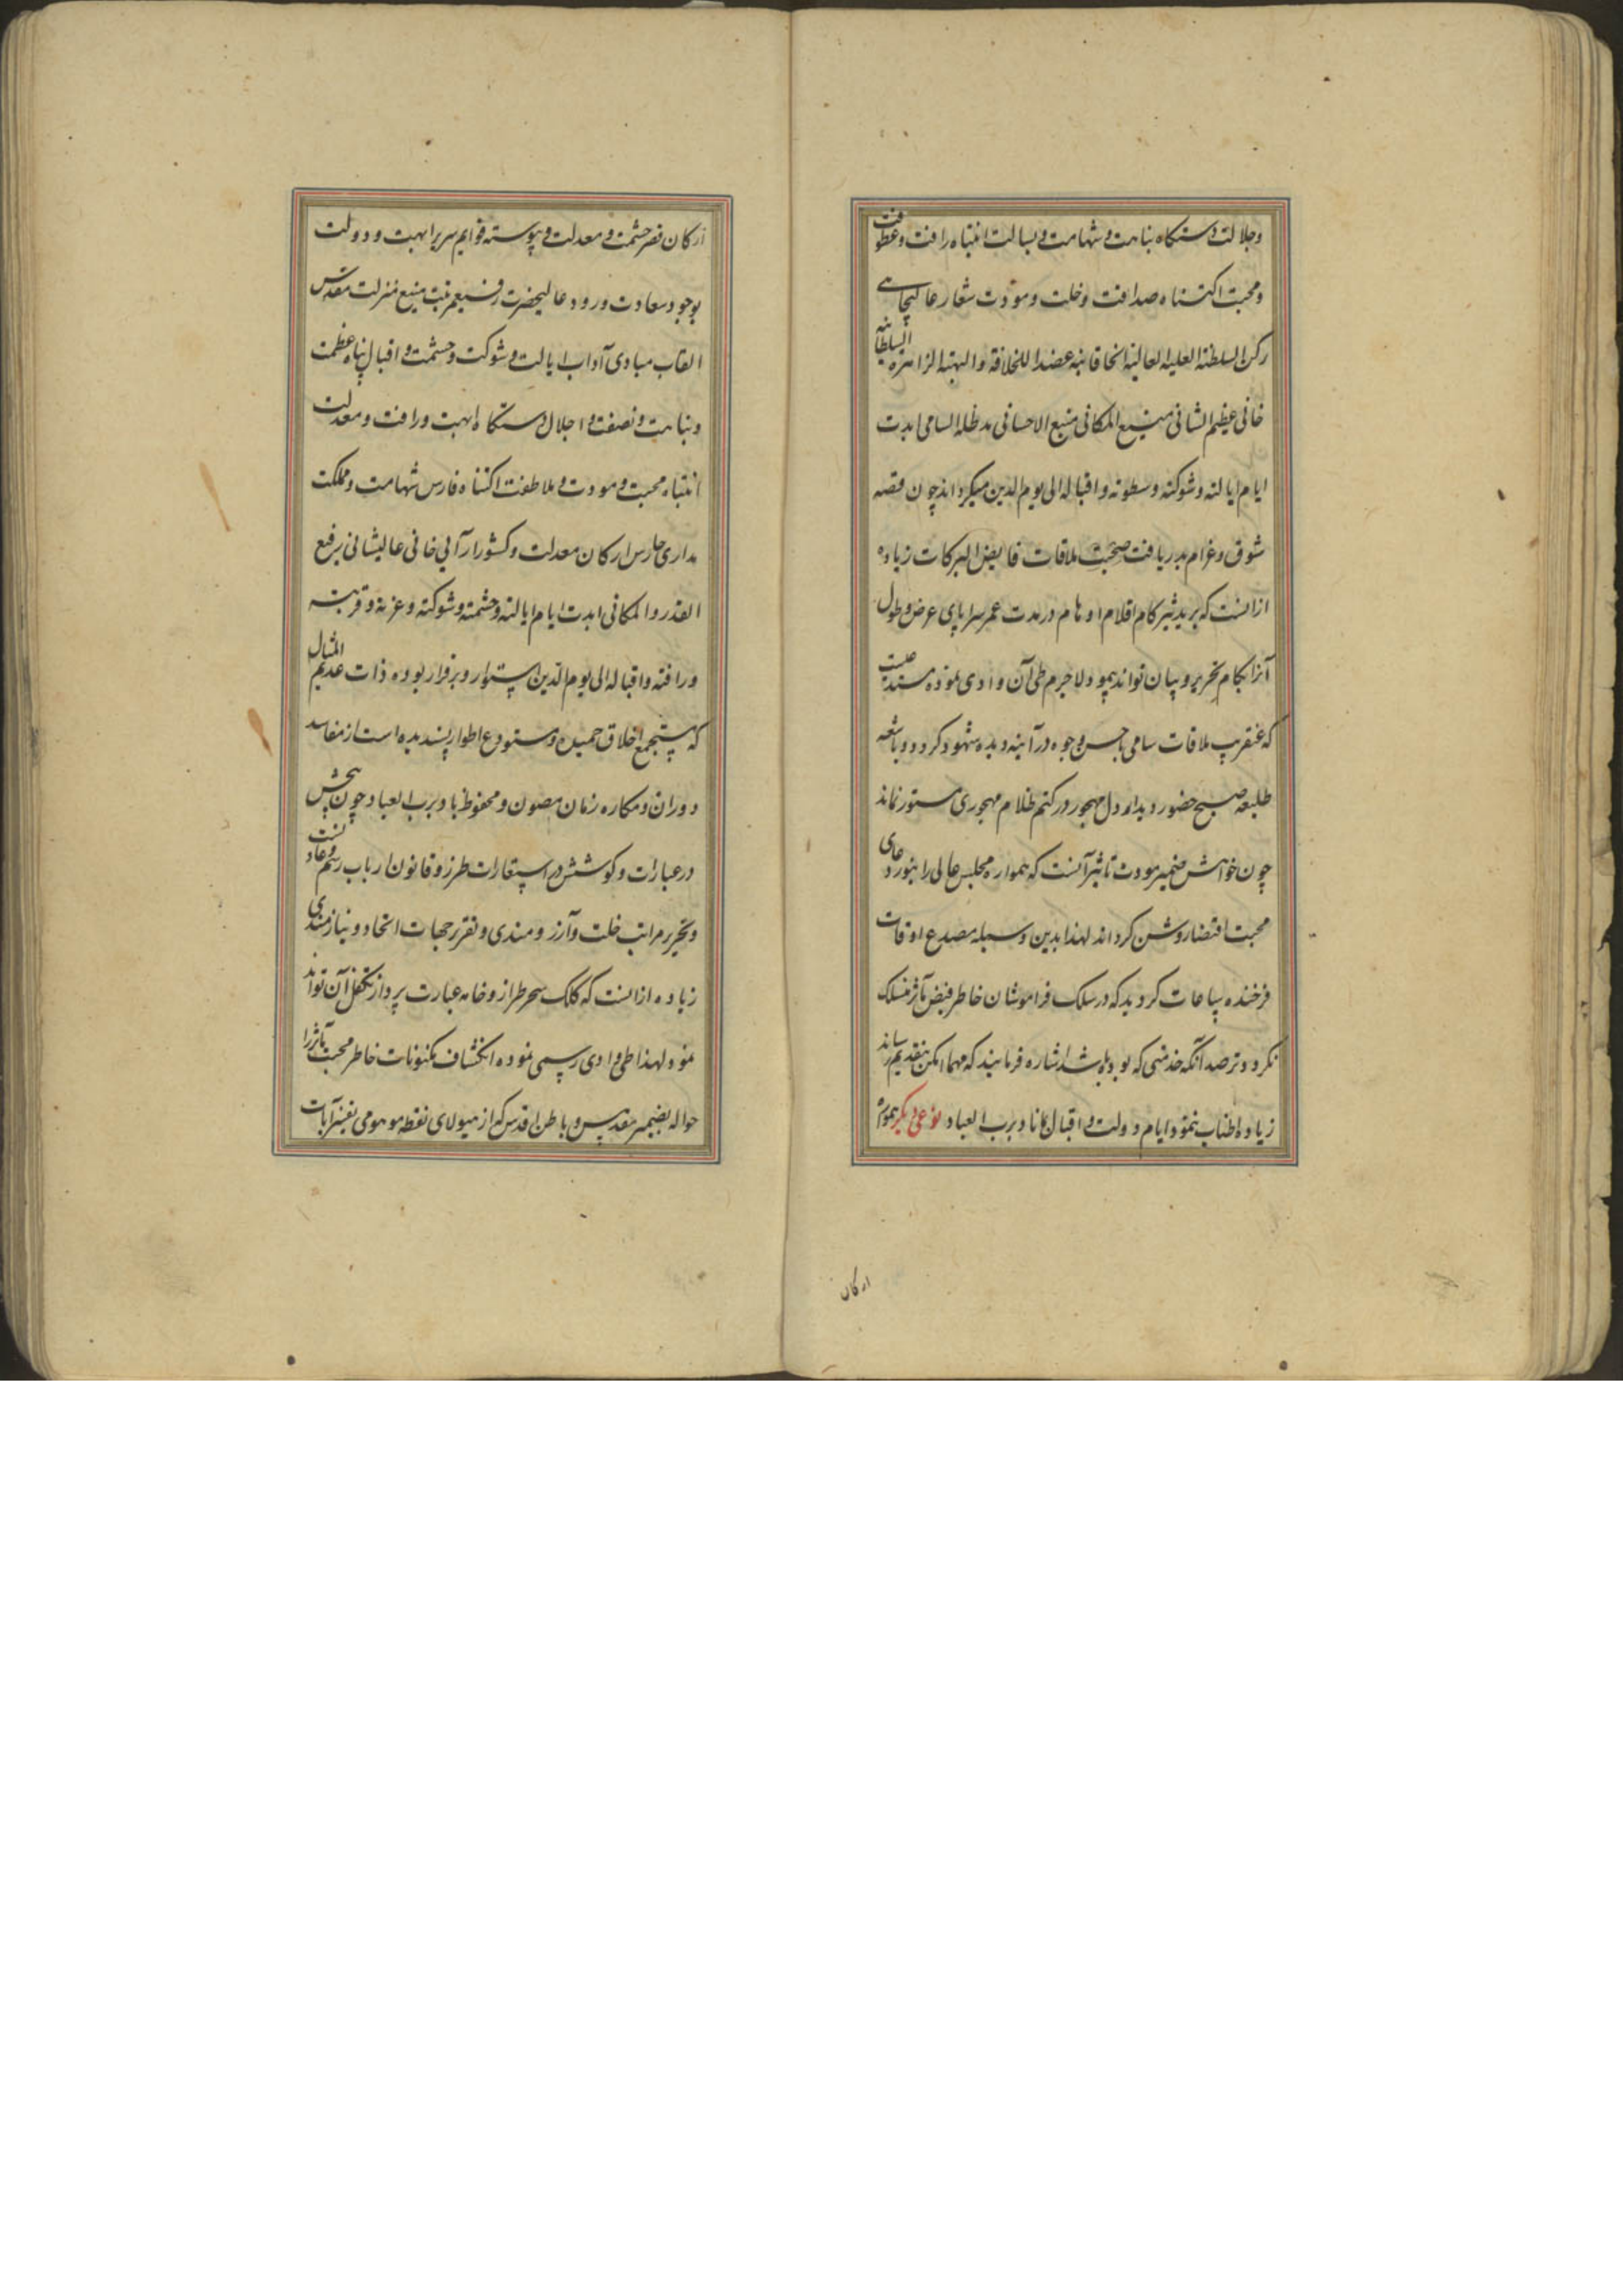 وجلالت دستکاه نباهت و شهامت و بسالت انتباه رافت و عطوفت
ومحبت اکتناه صداقت و خلت و مودت شعار عالیجاهی
رکن السلطنة العلیه العالیة الخاقانیه عضد اللخلافة والبهیة الزاهرة السلطانیه
خانی عظیم الشانی منیع المکانی منبع الاحسانی مد ظله السامی ابدت
ایام ایالته و شوکته و سطوته و اقباله الی یوم الدین میکرداند چون قصه
شوق و غرام بدریافت صحبت ملاقات فایض البرکات زیاده
ازانست که برید تیز کام اقلام اوهام در مدت عمر سراپای عرض و طول
آنرا بکام تحریر و بیان تواند پیمود لاجرم طی آن وادی نموده مستدعیست
که عنقریب ملاقات سامی باحسن وجوه در آینه دیده شهود کردد و باشعه
طلیعه صبح حضور دیدار دل مهجور در کتم ظلام مهجوری مستور نماند
چون خواهش ضمیر مودت تاثیر آنست که همواره مجلس عالی را بنور دعای
محبت اقتضا روشن کرداند لهذا بدین وسیله مصدع اوقات
فرخنده ساعات کردید که در سلک فراموشان خاطر فیض مآثر منسلک
نکردد و ترصد آنکه خدمتی که بوده باشد اشاره فرمایند که مهما امکن بتقدیم رساند
زیاده اطناب ننمود ایام دولت و اقبال مانا د برب العباد نوعی دیکر همواره
ارکان
ارکان قصر حشمت و معدلت و پیوسته قوایم سریر ابهت و دولت
بوجود سعادت ورود عالیحضرت رفیع مرتبت منیع منزلت مقدس
القاب مبادی آداب ایالت و شوکت و حشمت و اقبال پناه عظمت
ونباهت و نصفت و اجلال دستکاه ابهت و رافت و معدلت
انتباه محبت و مودت و ملاطفت اکتناه فارس شهامت و مملکت
مداری حارس ارکان معدلت و کشور آرایی خانی عالیشانی رفیع
القدر والمکانی ابدت ایام ایالته و حشمته و شوکته و عزته و
ورافته و اقباله الی یوم الدین استوار و برقرار بوده ذات عدیم المثال
که مستجمع اخلاق حمیده و مستودع اطوار پسندیده است از مفاسد
دوران و مکاره زمان مصون و محفوظ باد برب العباد چون
در عبارات و کوشش در استعارات طرز و قانون ارباب رسم و عادتست
وتحریر مراتب خلت و آرزومندی و تقریر جهات اتحاد و نیازمندی
زیاده ازانست که کلک سحر طراز و خامه عبارت پرداز تکفل آن تواند
نمود لهذا طی وادی رسمی نموده انکشاف مکنونات خاطر محبت مآثر را
حواله بضمیر مقدس و باطن اقدس که از هیولای نقطه موهومی آیات